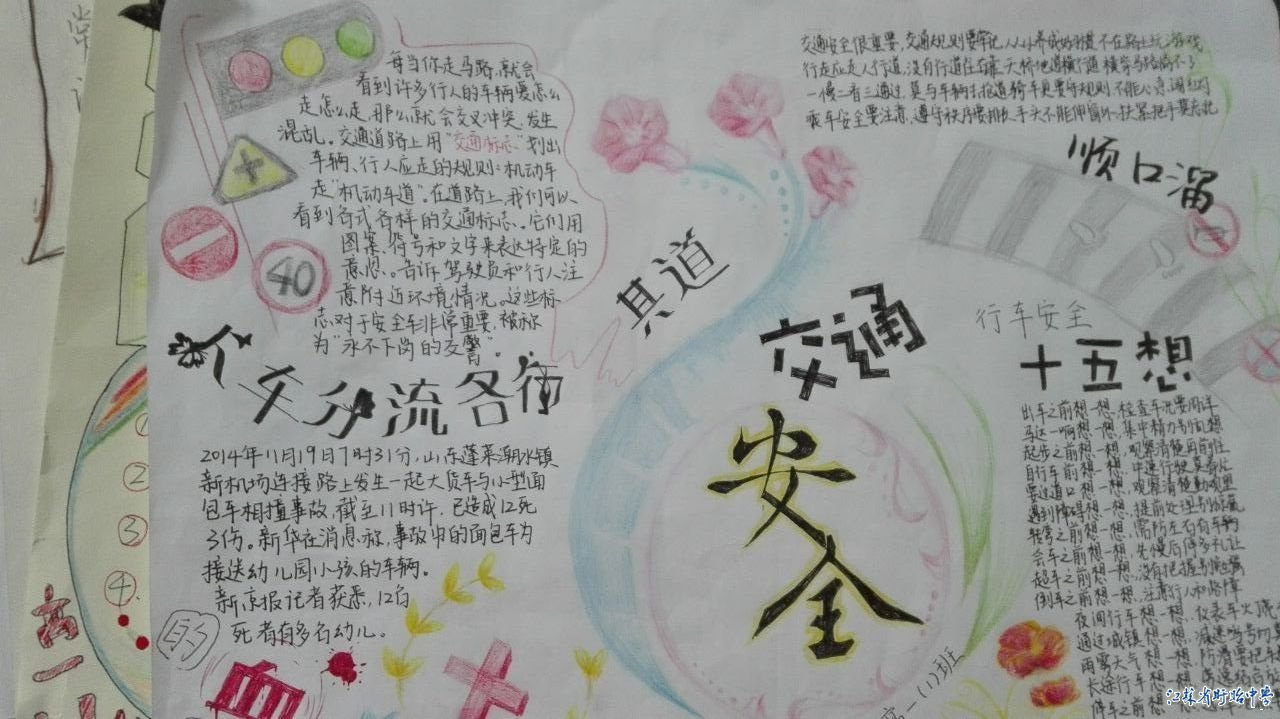 每当你走马路,就会
看到许多行人的车辆要怎么
走怎么走,那么就会交叉冲突,发生
混乱。交通道路上用"交通标志"划出
车辆、行人应走的规则:机动车
走"机动车道"。在道路上,我们可以
看到各式各样的交通标志。它们用
图案,符号和文字来表达特定的
意思。告诉驾驶员和行人注
意附近环境情况。这些标
志对于安全车非常重要,被称
为"永不下岗的交警"。
40
人车分流各行
其道
2014年11月19日7时31分,山东蓬莱潮水镇
新机场连接路上发生一起大货车与小型面
包车相撞事故,截至11时许,已造成12死
3伤。新华在消息称,事故中的面包车为
接送幼儿园小孩的车辆。
新京报记者获悉,12名
死者有多名幼儿。
交通
安全
高一(1)班
交通安全很重要,交通规则要牢记,从小养成好习惯,不在路上玩游戏
行走应走人行道,没有行道往右靠,天桥地道横行道,横穿马路离不了
一慢二看三通过,莫与车辆去抢道,骑车更要守规则,不能心急闯红灯
乘车安全要注意,遵守秩序要排队,手头不能伸窗外,扶紧把手莫忘记
顺口溜
行车安全
十五想
出车之前想一想,检查车况要周详
马达一响想一想,集中精力别乱想
起步之前想一想,观察清楚再前往
自行车前想一想,中速行驶莫着忙
要过道口想一想,观察清楚勤瞭望
遇到障碍想一想,提前处理别惊慌
转弯之前想一想,需防左右有车辆
会车之前想一想,先慢后停多礼让
超车之前想一想,没有把握别勉强
倒车之前想一想,注意行人和路障
夜间行车想一想,仪表车火
通过城镇想一想,减速鸣号
雨雾天气想一想,防滑要把
长途行车想一想
停车之前想一想
①
②
③
④
高一
江苏省盱眙中学